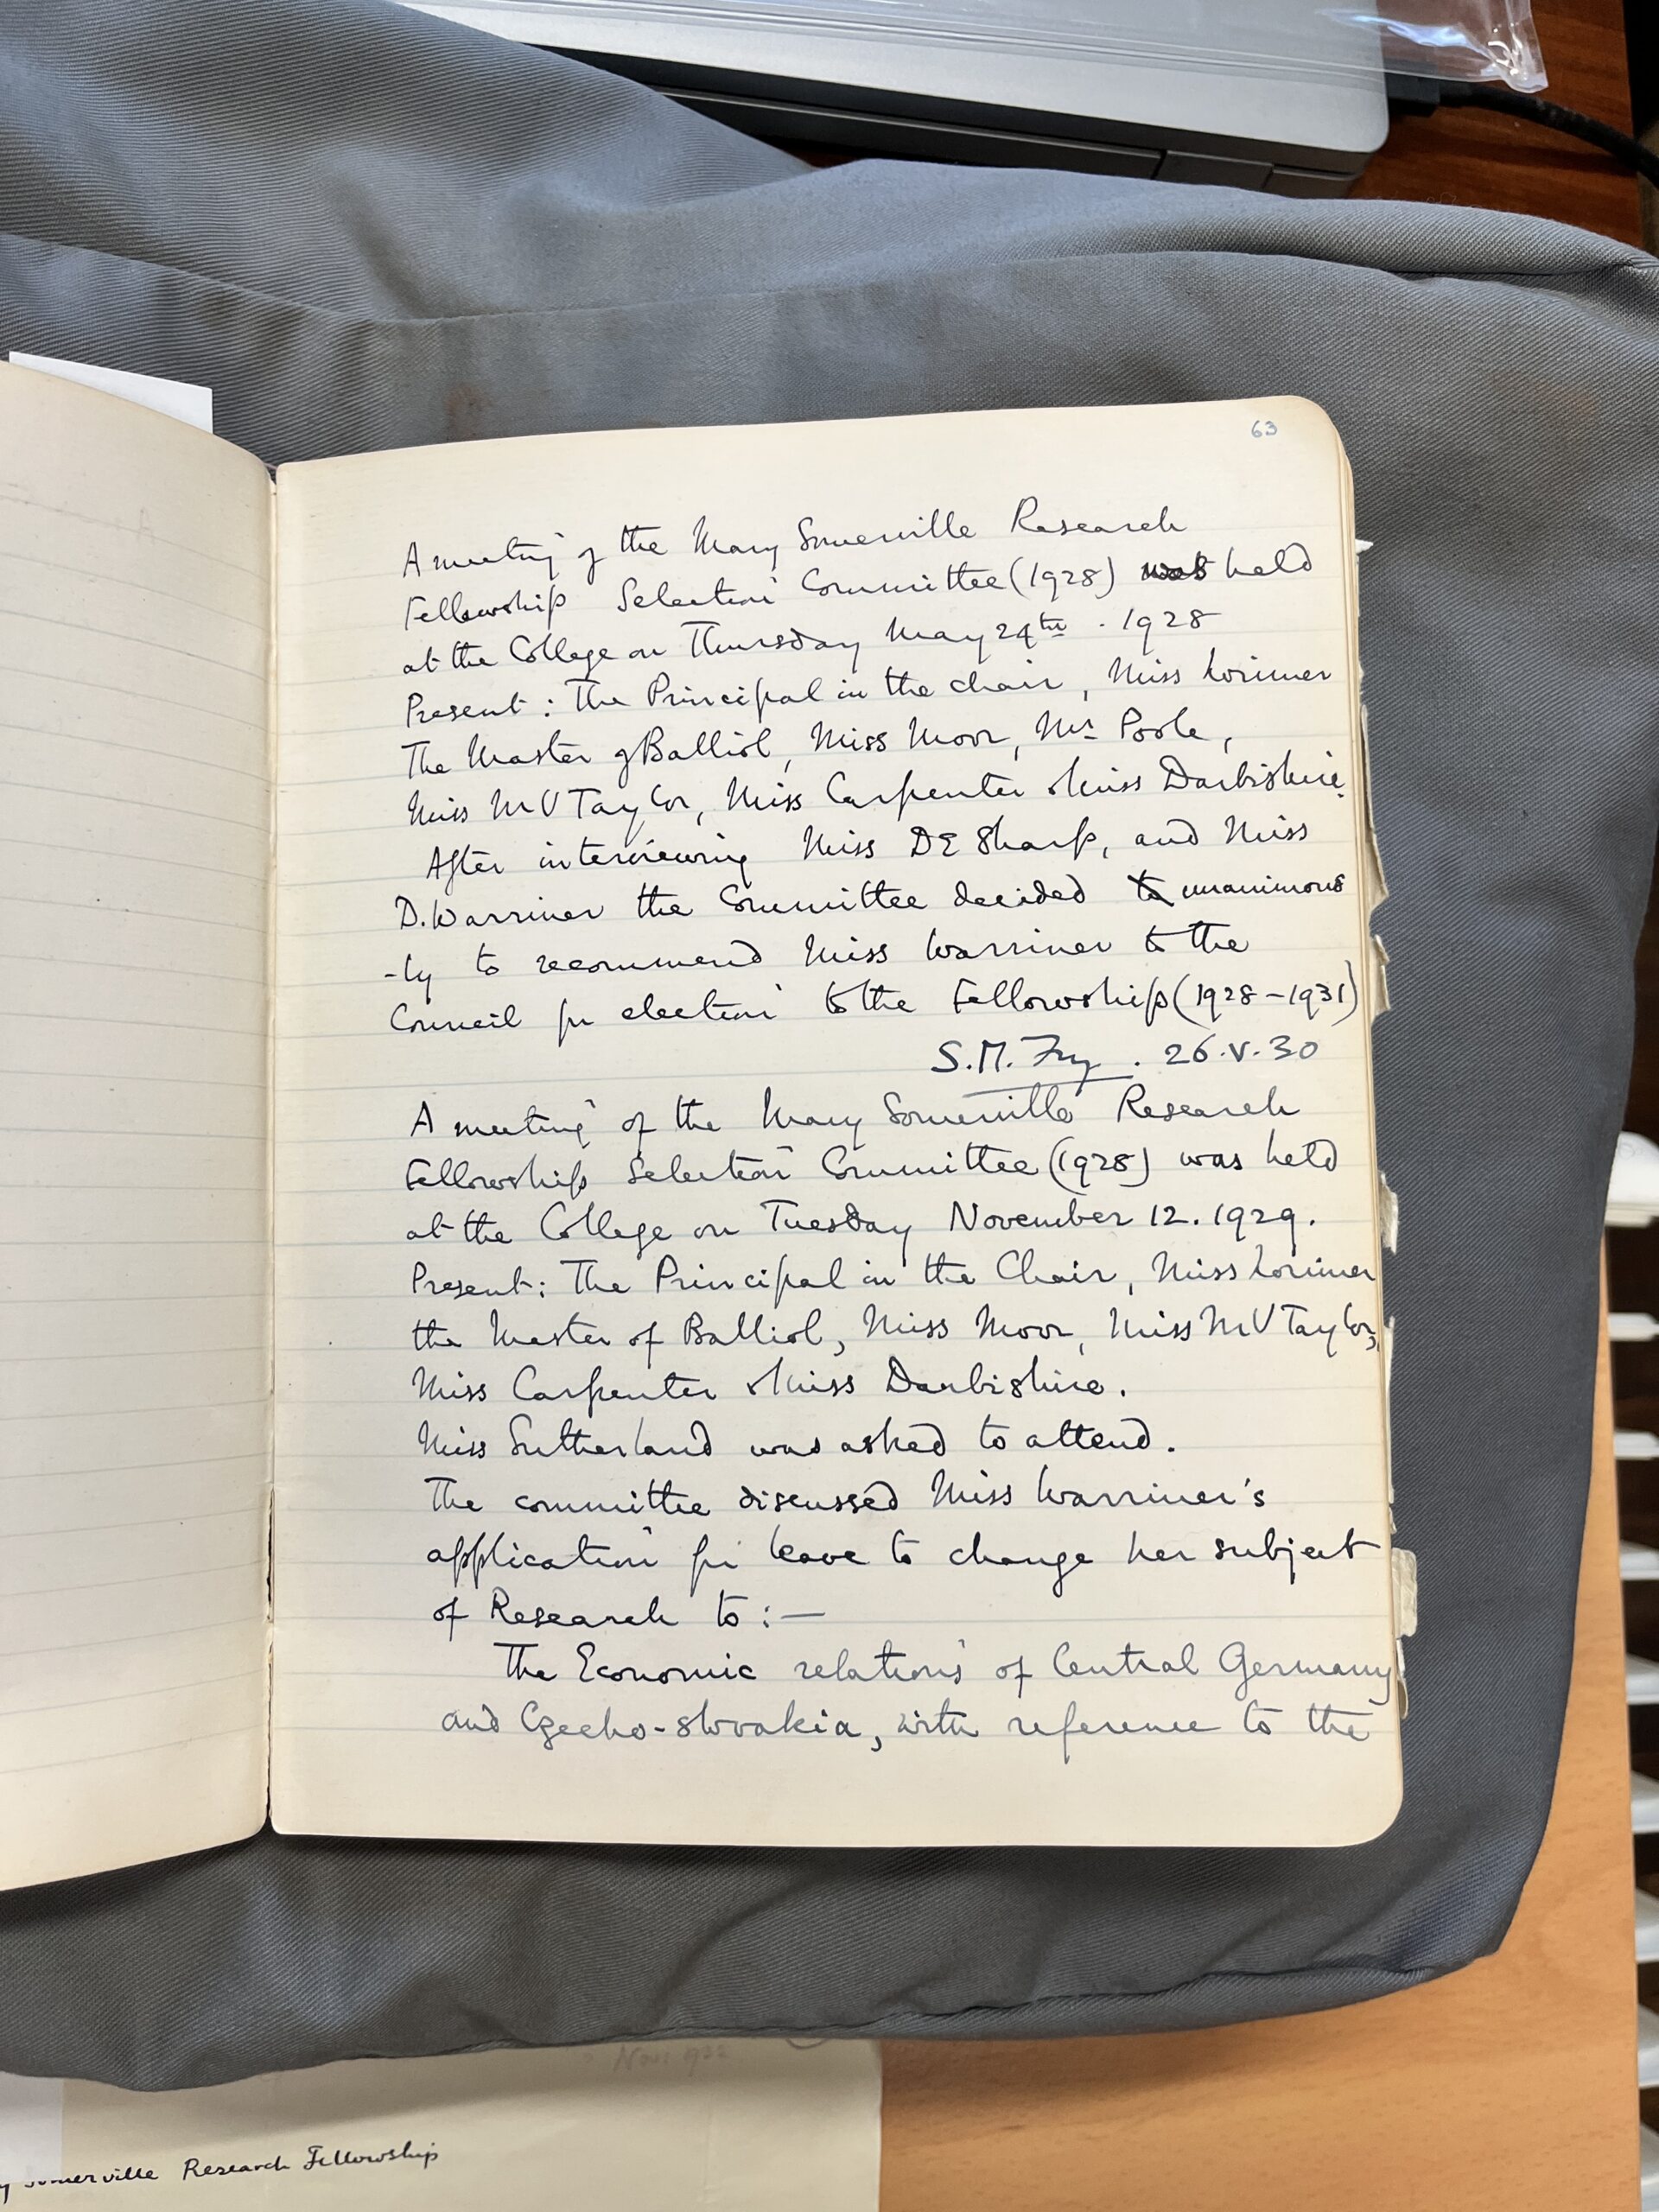 63
A meeting of the Mary Somerville Research
Fellowship Selection Committee (1928) was held
at the College on Thursday May 24th . 1928
Present : The Principal in the chair, Miss Lorimer
The Master of Balliol, Miss Moor, Mr Poole,
Miss M V Taylor, Miss Carpenter & Miss Darbishire.
After interviewing Miss D E Sharp, and Miss
D. Warriner the Committee decided to unanimous
-ly to recommend Miss Warriner to the
Council for election to the Fellowship (1928-1931)
S.M. Fry . 26.V.30
A meeting of the Mary Somerville Research
Fellowship Selection Committee (1928) was held
at the College on Tuesday November 12. 1929.
Present : The Principal in the Chair, Miss Lorimer
the Master of Balliol, Miss Moor, Miss M V Taylor,
Miss Carpenter & Miss Darbishire.
Miss Sutherland was asked to attend.
The committee discussed Miss Warriner's
application for leave to change her subject
of Research to :—
The Economic relations of Central Germany
and Czecho-slovakia, with reference to the
Somerville Research Fellowship